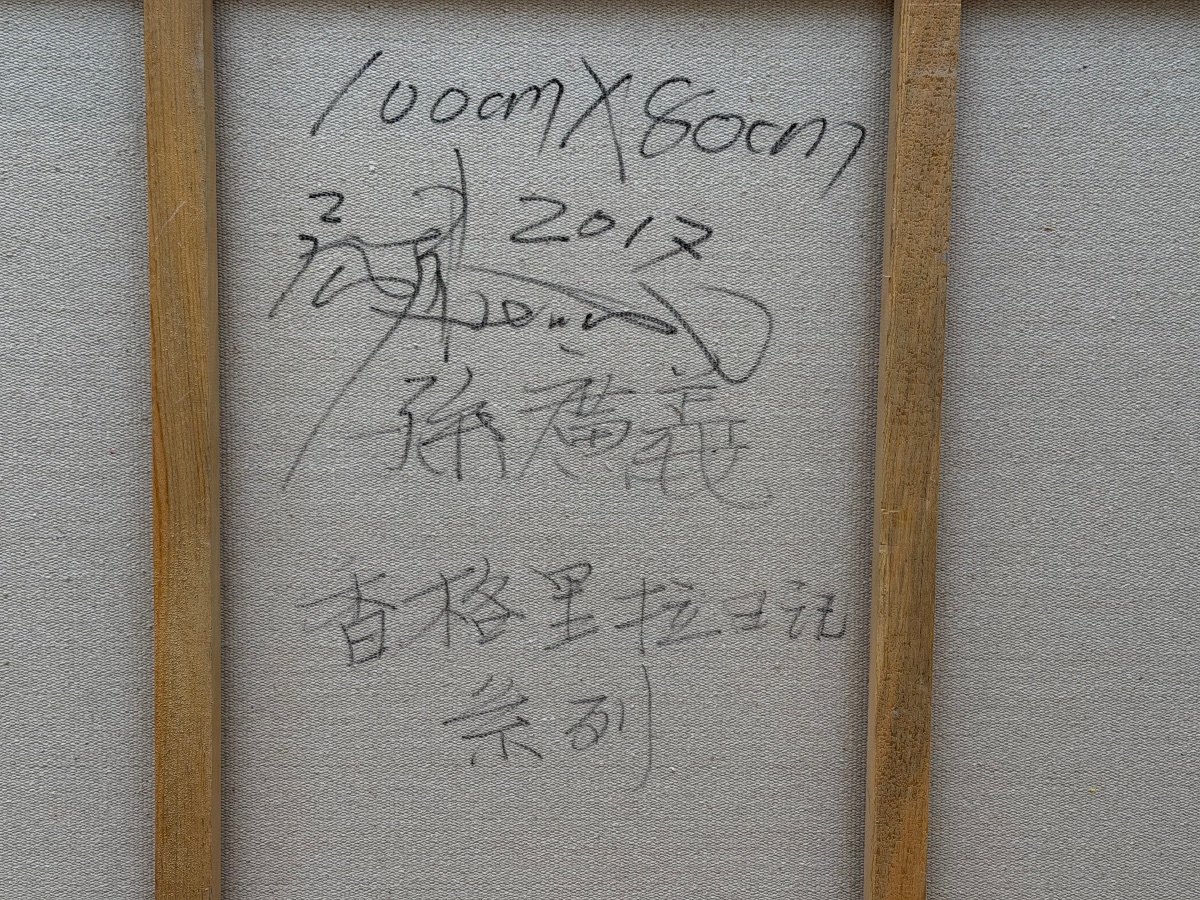 100cm X 80cm
2017
孫廣義
香格里拉士记
系列